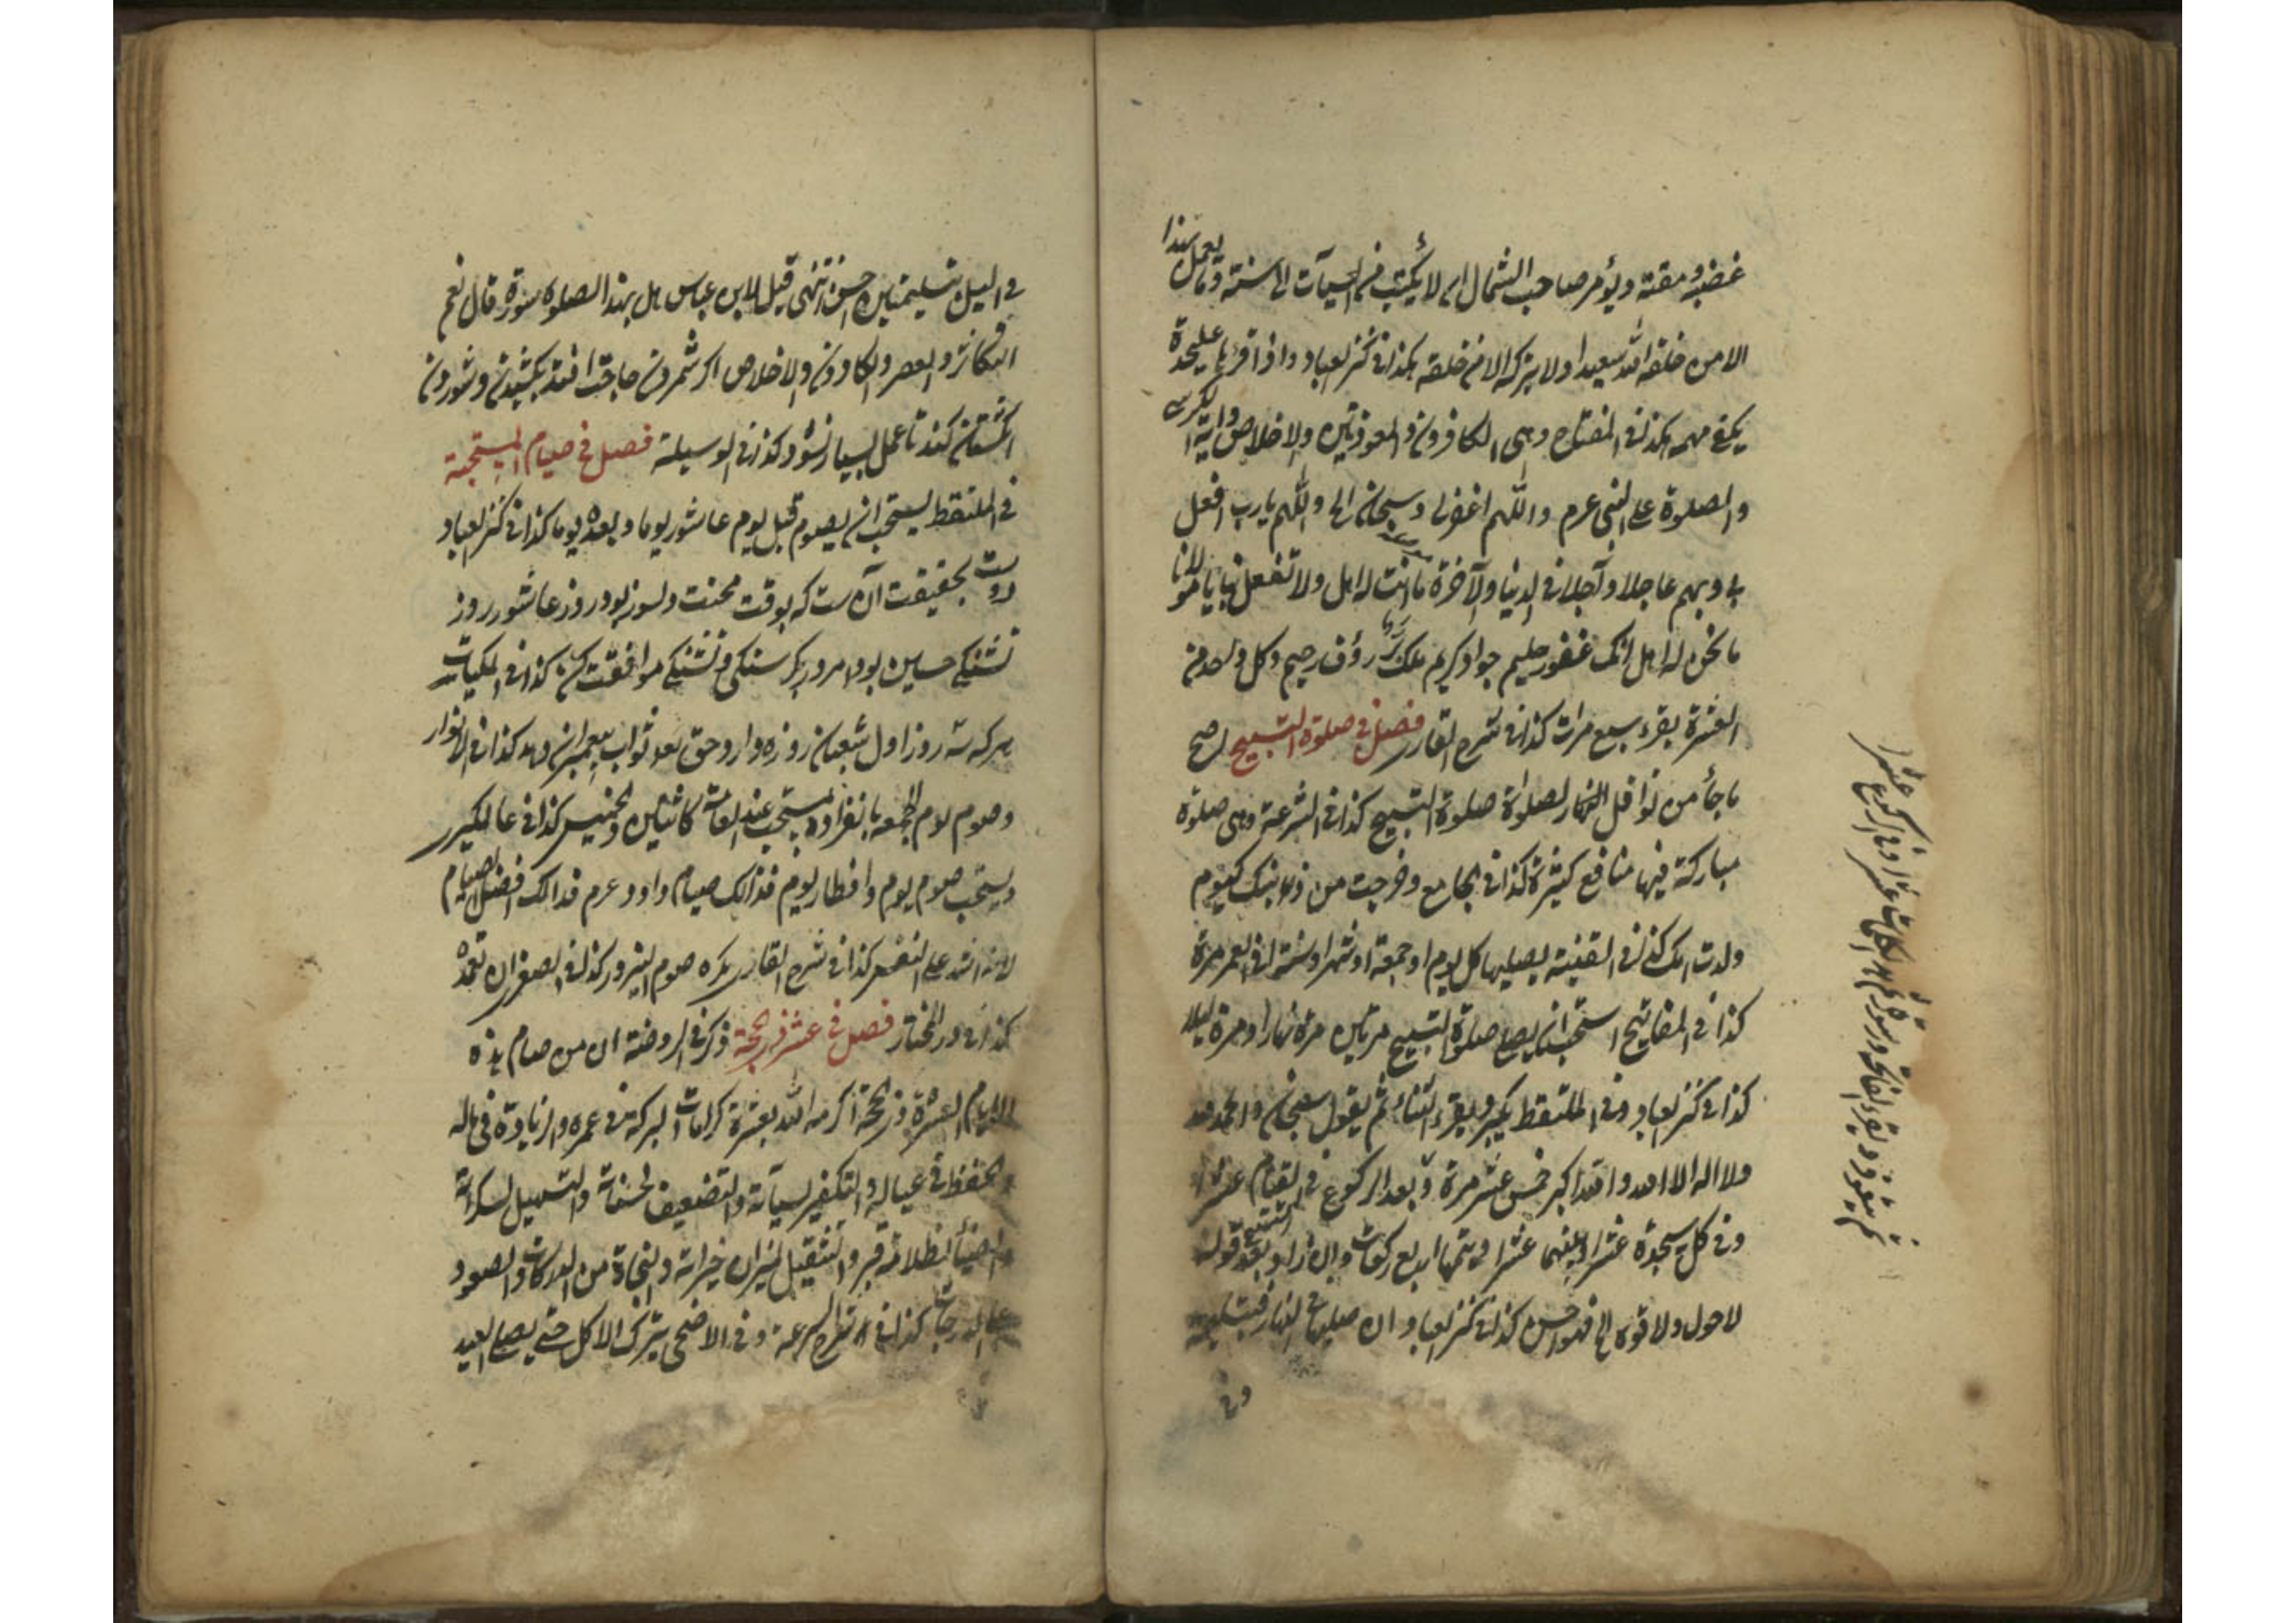 غضبه ومقته ويؤمر صاحب الشمال ان لا يكتب في السيآت الى سنة وما يعمل هذا
الا من خلقه الله سعيدا ولا يتركه الا من خلقه هكذا في كنز العباد واذا قرءها عليحدة
يكفي مهمه كذا في المفتاح وهي الكافرون والمعوذتين والاخلاص وآية الكرسي
والصلوة على النبي عرم واللهم اغفر لي وسبحان الى واللهم يا رب افعل
بي وبهم عاجلا وآجلا في الدنيا والآخرة ما انت له اهل ولا تفعل بنا يا مولانا
ما نحن له اهل انك غفور حليم جواد كريم ملك بر رؤف رحيم وكل واحد من
العشرة يقرء سبع مرات كذا في شرح القاري فصل في صلوة التسبيح اصح
ما جأ من نوافل الصلواة صلوة التسبيح كذا في الشرعة وهي صلوة
مباركة فيها منافع كثيرة كذا في الجامع وخرجت من ذنبك كيوم
ولدت امك كذا في القنية يصليها كل يوم او جمعة او شهر او سنة او في العمر مرة
كذا في المفاتيح استحب ان يصلي صلوة التسبيح مرتين مرة نهارا ومرة ليلا
كذا في كنز العباد وفي الملتقط يكبر ويقرء الثناء ثم يقول سبحان والحمد لله
ولا اله الا الله والله اكبر خمس عشر مرة وبعد الركوع في القيام عشرا
وفي كل سجدة عشرا وبينهما عشرا ويتمها اربع ركعات وان زاد بعد التسبيح قوله
لا حول ولا قوة الخ فهو احسن كذا في كنز العباد وان صليها في النهار فبتسليمة
وفي
في الليل بتسليمتين احسن انتهى قيل لابن عباس هل لهذا الصلوة سورة قال نعم
التكاثر والعصر والكافرون والاخلاص اگر شمردن حاجت افتد بكشيدن وشوردن
انگشتان كند تا عمل بسيار نشود كذا في الوسيلة فصل في صيام المستحبة
في الملتقط يستحب ان يصوم قبل يوم عاشور يوما وبعده يوما كذا في كنز العباد
دوست بحقيقت آن ست كه بوقت محنت دلسوز بود روز عاشور روز
تشنگي حسين بود امروز بگرسنگي وتشنگي موافقت كن كذا في المكيات
هركه سه روز اول شعبان روزه دارد حق تعالى ثواب پيغمبران دهد كذا في الانوار
وصوم يوم الجمعه بانفراده مستحب عند العامة كاثنين والخميس كذا في عالمگيري
ويستحب صوم يوم وافطار يوم فذالك صيام داود عرم فذالك افضل الصيام
لانه اشد على النفس كذا في شرح القاري يكره صوم النيروز كذا في الصغرى ان تعمده
كذا في در المختار فصل في عشر ذي الحجة ذكر في الروضة ان من صام هذه
الايام العشرة ذي الحجة اكرمه الله بعشرة كرامات البركة في عمره والزيادة في ماله
والحفظ في عياله والتكفير لسيآته والتضعيف لحسناته والتسهيل لسكراته
والضيأ لظلامة قبره والتثقيل لميزان خيراته والنجاة من الدركات والصعود
على الدرجات كذا في شرح الشرعة وفي الاضحى يترك الاكل حتى يصلي العيد